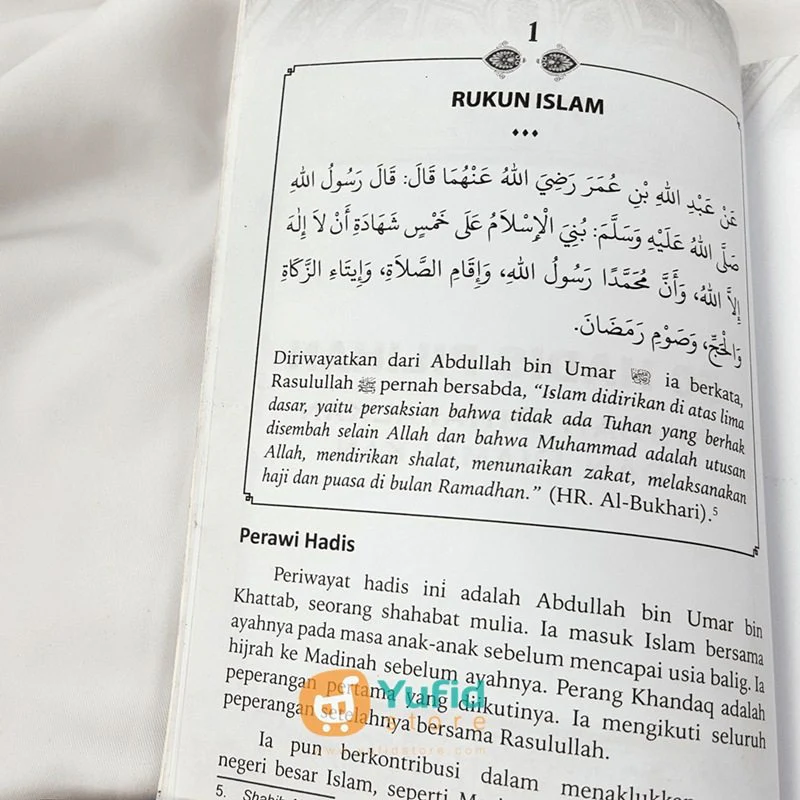 1
RUKUN ISLAM
عَنْ عَبْدِ اللهِ بْنِ عُمَرَ رَضِيَ اللهُ عَنْهُمَا قَالَ: قَالَ رَسُولُ اللهِ
صَلَّى اللهُ عَلَيْهِ وَسَلَّمَ: بُنِيَ الْإِسْلَامُ عَلَى خَمْسٍ شَهَادَةِ أَنْ لَا إِلٰهَ
إِلَّا اللهُ، وَأَنَّ مُحَمَّدًا رَسُولُ اللهِ، وَإِقَامِ الصَّلَاةِ، وَإِيتَاءِ الزَّكَاةِ
وَالْحَجِّ، وَصَوْمِ رَمَضَانَ.
Diriwayatkan dari Abdullah bin Umar ia berkata,
Rasulullah ﷺ pernah bersabda, “Islam didirikan di atas lima
dasar, yaitu persaksian bahwa tidak ada Tuhan yang berhak
disembah selain Allah dan bahwa Muhammad adalah utusan
Allah, mendirikan shalat, menunaikan zakat, melaksanakan
haji dan puasa di bulan Ramadhan.” (HR. Al-Bukhari).⁵
Perawi Hadis
Periwayat hadis ini adalah Abdullah bin Umar bin
Khattab, seorang shahabat mulia. Ia masuk Islam bersama
ayahnya pada masa anak-anak sebelum mencapai usia balig. Ia
hijrah ke Madinah sebelum ayahnya. Perang Khandaq adalah
peperangan pertama yang diikutinya. Ia mengikuti seluruh
peperangan setelahnya bersama Rasulullah.
Ia pun berkontribusi dalam menaklukkan
negeri besar Islam, seperti
5. Shahih
Yufid
store
www.yufidstore.com